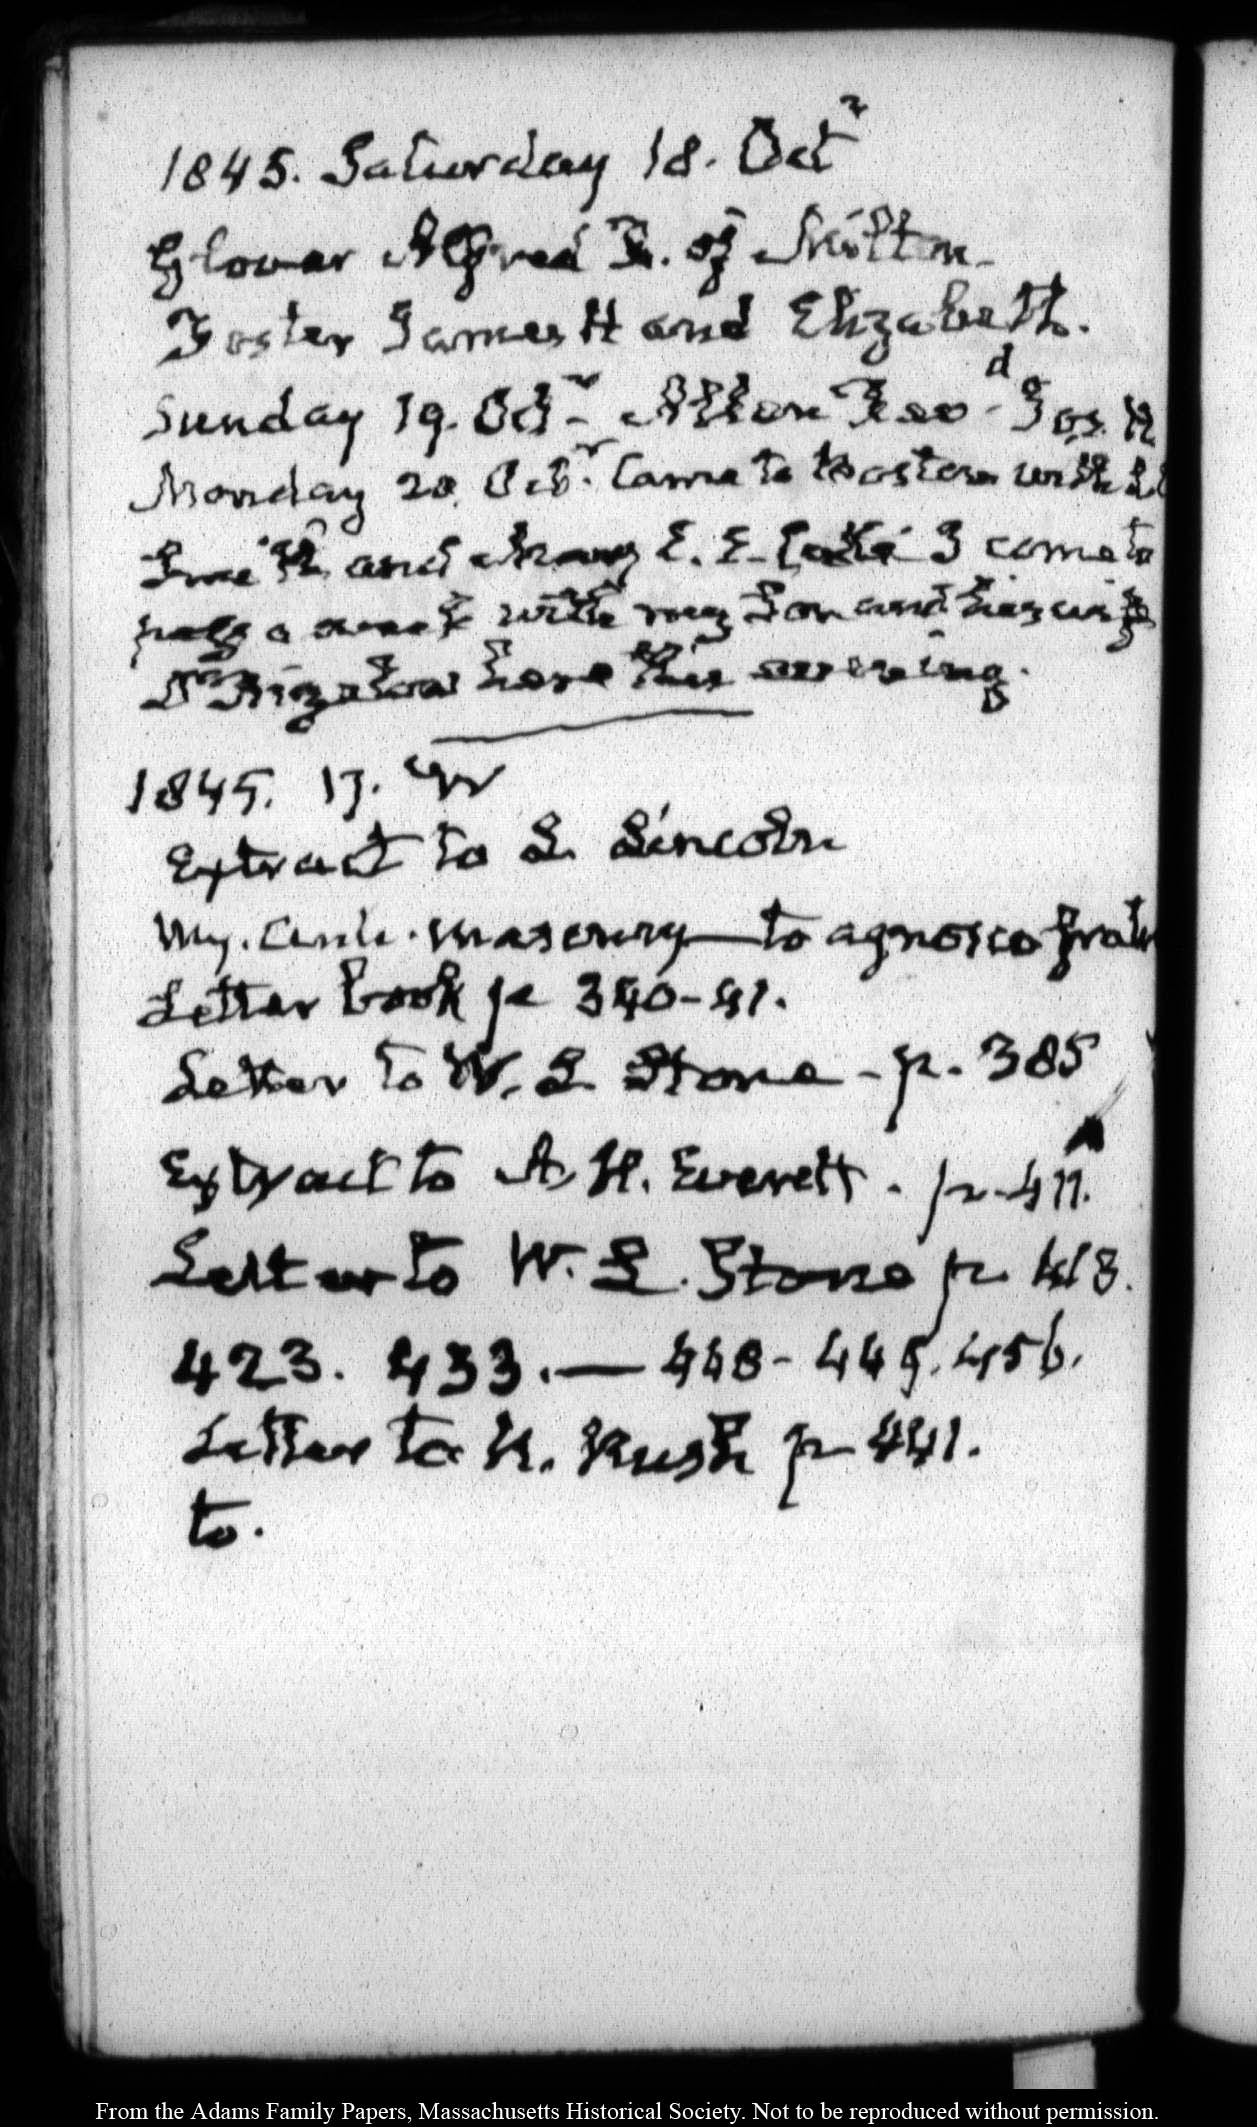 1845. Saturday 18. Octr
Glover Alfred R. of Milton
Foster James H and Elizabeth.
Sunday 19. Octr
Monday 20. Octr. Came to Boston with
Smith and Mary E. E. I come to
pass a week with my Son and his wife
Dr Bigelow here this evening.
1845. 17. IV
Extract to L. Lincoln
My. Masonry — to agnosco
Letter book p 340-41.
Letter to W. L. Stone - p. 385
Extract to A H. Everett. p. 411.
Letter to W. L. Stone p 418.
423. 433. — 448 - 449. 456.
Letter to R. Rush p 441.
to.
From the Adams Family Papers, Massachusetts Historical Society. Not to be reproduced without permission.